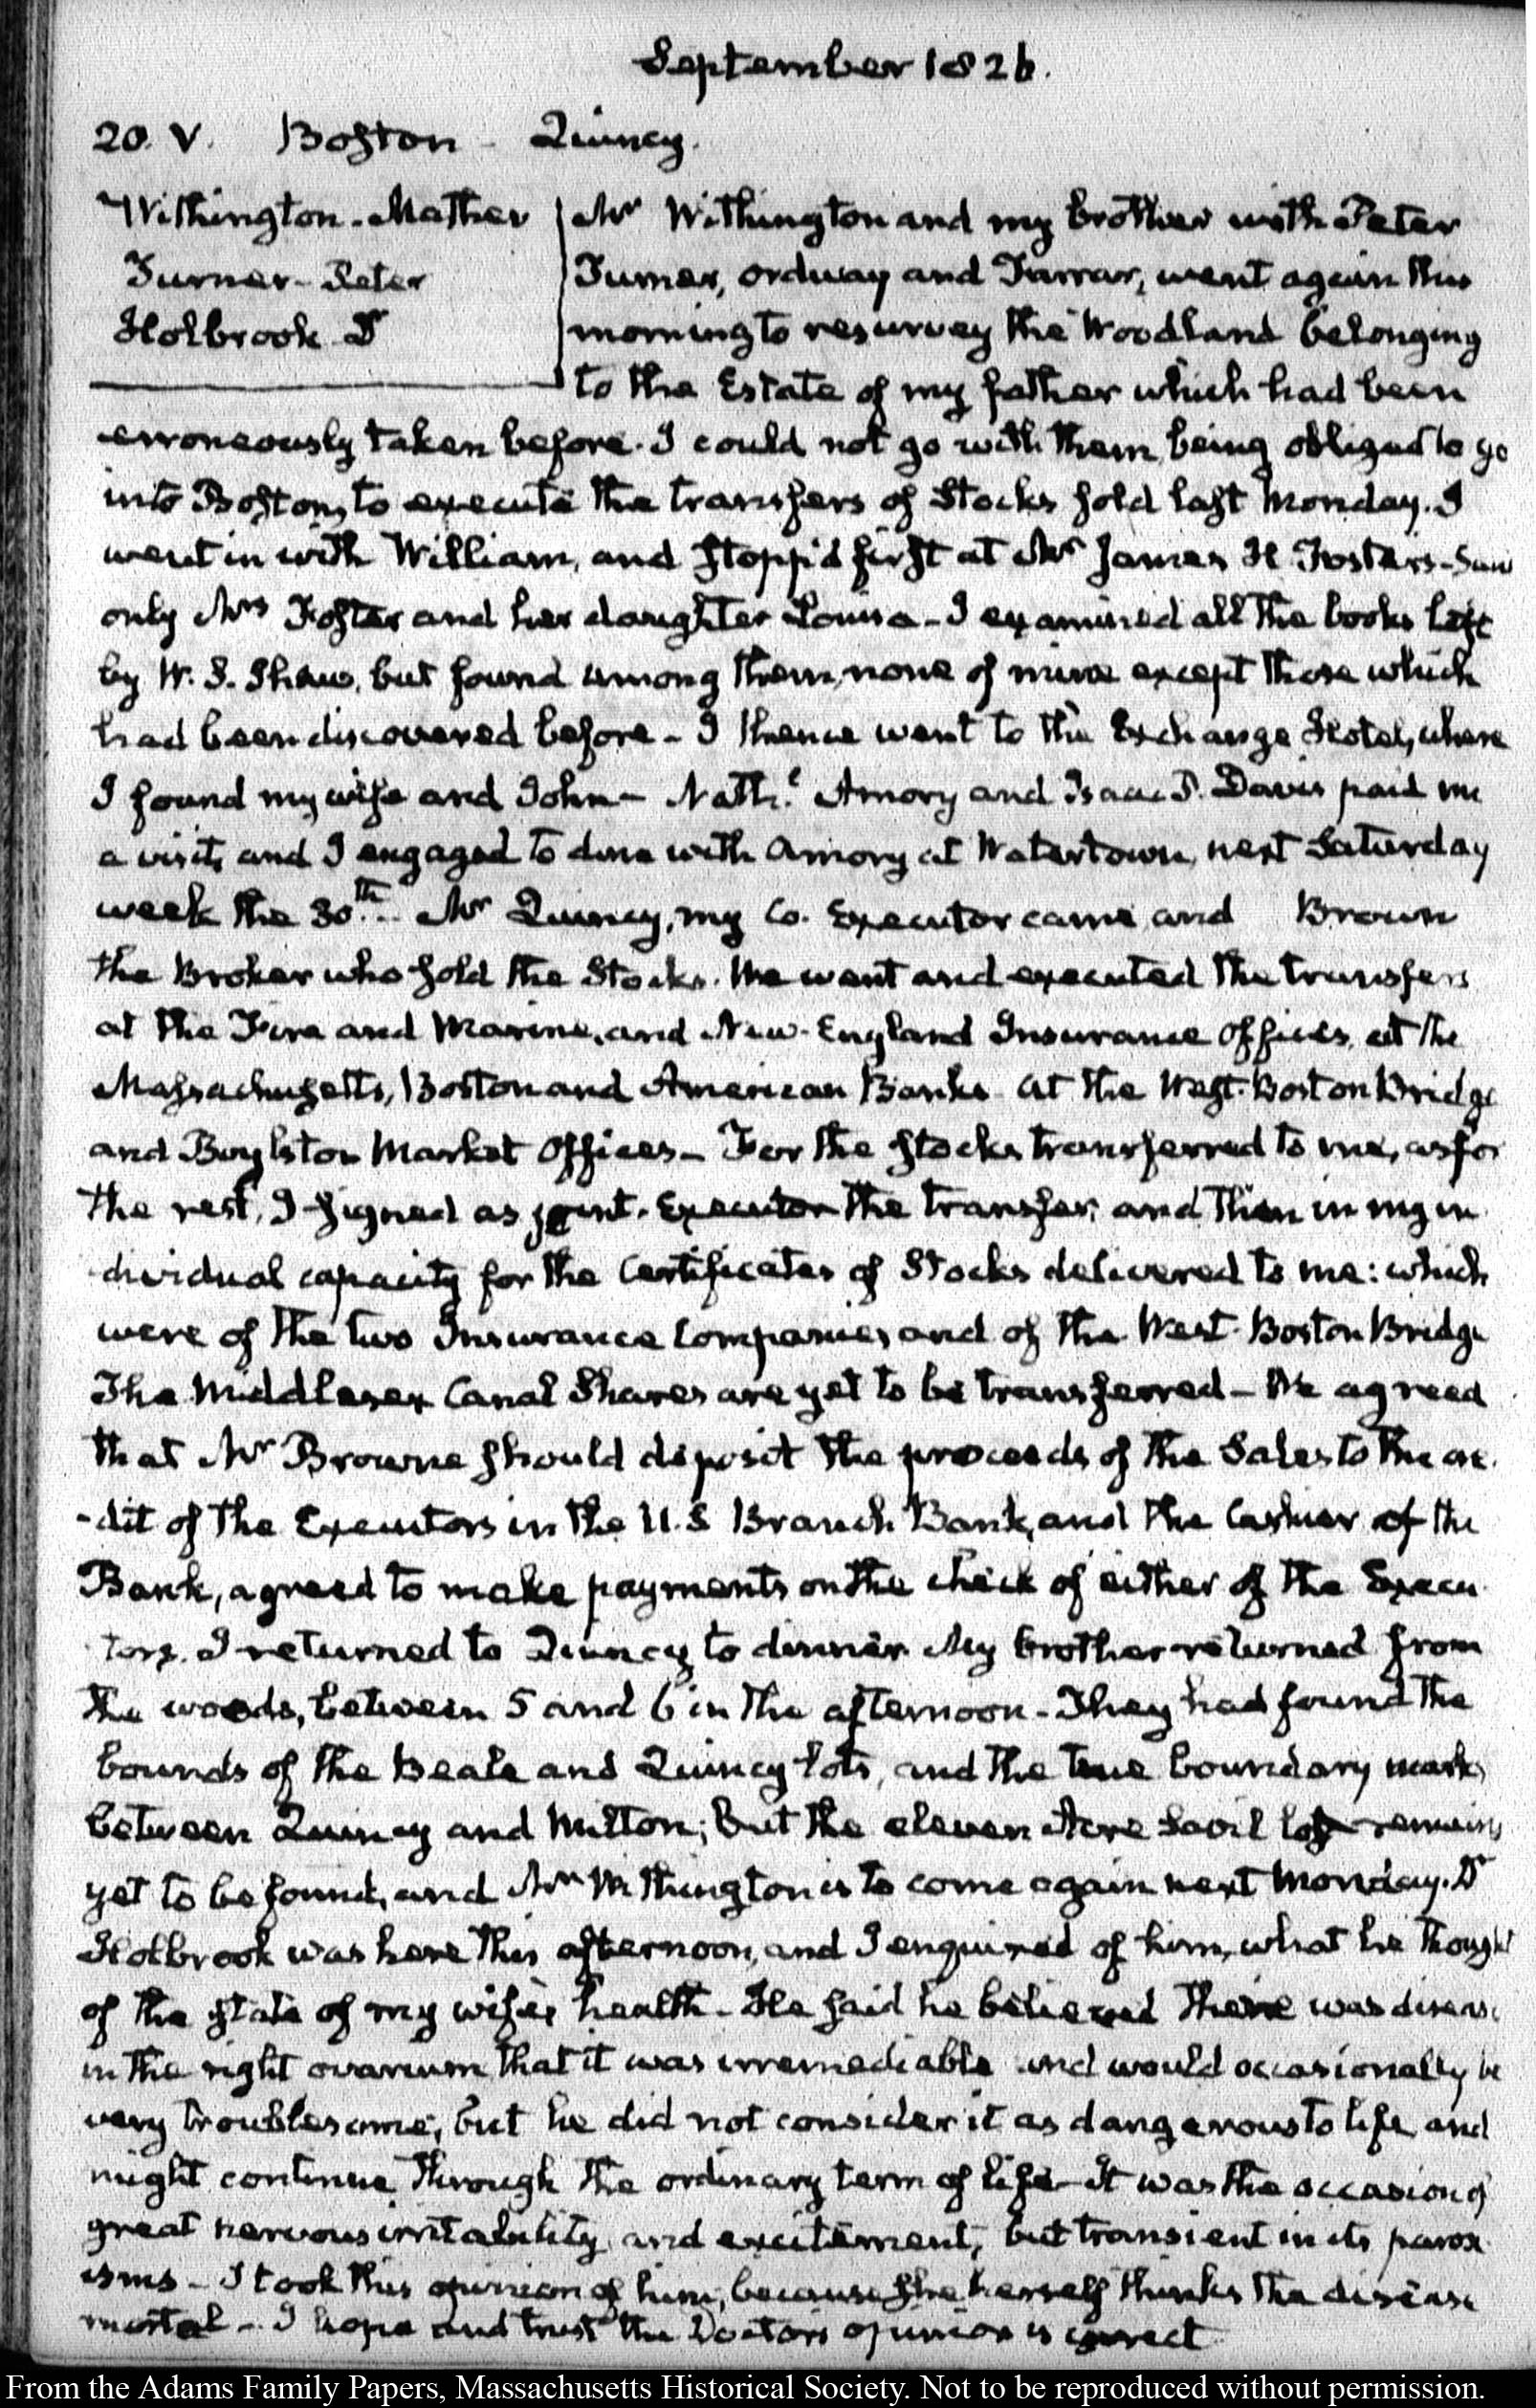 September 1826.
20. V. Boston - Quincy.
Withington - Mather
Turner - Peter
Holbrook Dr
Mr Withington and my brother with Peter
Turner, Ordway and Farrar, went again this
morning to resurvey the Woodland belonging
to the Estate of my father which had been
erroneously taken before. I could not go with them being obliged to go
into Boston, to execute the transfers of Stocks sold last Monday. I
went in with William, and stopp'd first at Mr James H. Foster's - Saw
only Mrs Foster and her daughter Louisa - I examined all the books left
by W. S. Shaw, but found among them none of mine except those which
had been discovered before - I thence went to the Exchange Hotel, where
I found my wife and John - Nathl. Amory and Isaac P. Davis paid me
a visit, and I engaged to dine with Amory at Watertown, next Saturday
week the 30th. - Mr Quincy, my Co. Executor came and Brown
the Broker who sold the Stocks. We went and executed the transfers
at the Fire and Marine, and New-England Insurance Offices, at the
Massachusetts, Boston and American Banks at the West-Boston Bridge
and Boylston Market Offices - For the stocks transferred to me, as for
the rest, I signed as joint-Executor the transfer, and then in my in
dividual capacity for the Certificates of Stocks delivered to me: which
were of the two Insurance Companies and of the West-Boston Bridge
The Middlesex Canal Shares are yet to be transferred - We agreed
that Mr Browne should deposit the proceeds of the Sales to the cre-
-dit of the Executors in the U.S. Branch Bank, and the Cashier of the
Bank, agreed to make payments on the check of either of the Execu-
tors. I returned to Quincy to dinner. My brother returned from
the woods, between 5 and 6 in the afternoon - They had found the
bounds of the Beale and Quincy lots, and the true boundary marks
between Quincy and Milton; but the eleven Acre Savil lot remains
yet to be found, and Mr Withington is to come again next Monday. Dr
Holbrook was here this afternoon, and I enquired of him, what he thought
of the state of my wife's health - He said he believed there was disease
in the right ovarium that it was irremediable and would occasionally be
very troublesome; but he did not consider it as dangerous to life and
might continue through the ordinary term of life - It was the occasion of
great nervous irritability, and excitement, but transient in its parox
isms - I took this opinion of him, because she herself thinks the disease
mortal - I hope and trust the Doctor's opinion is correct
From the Adams Family Papers, Massachusetts Historical Society. Not to be reproduced without permission.